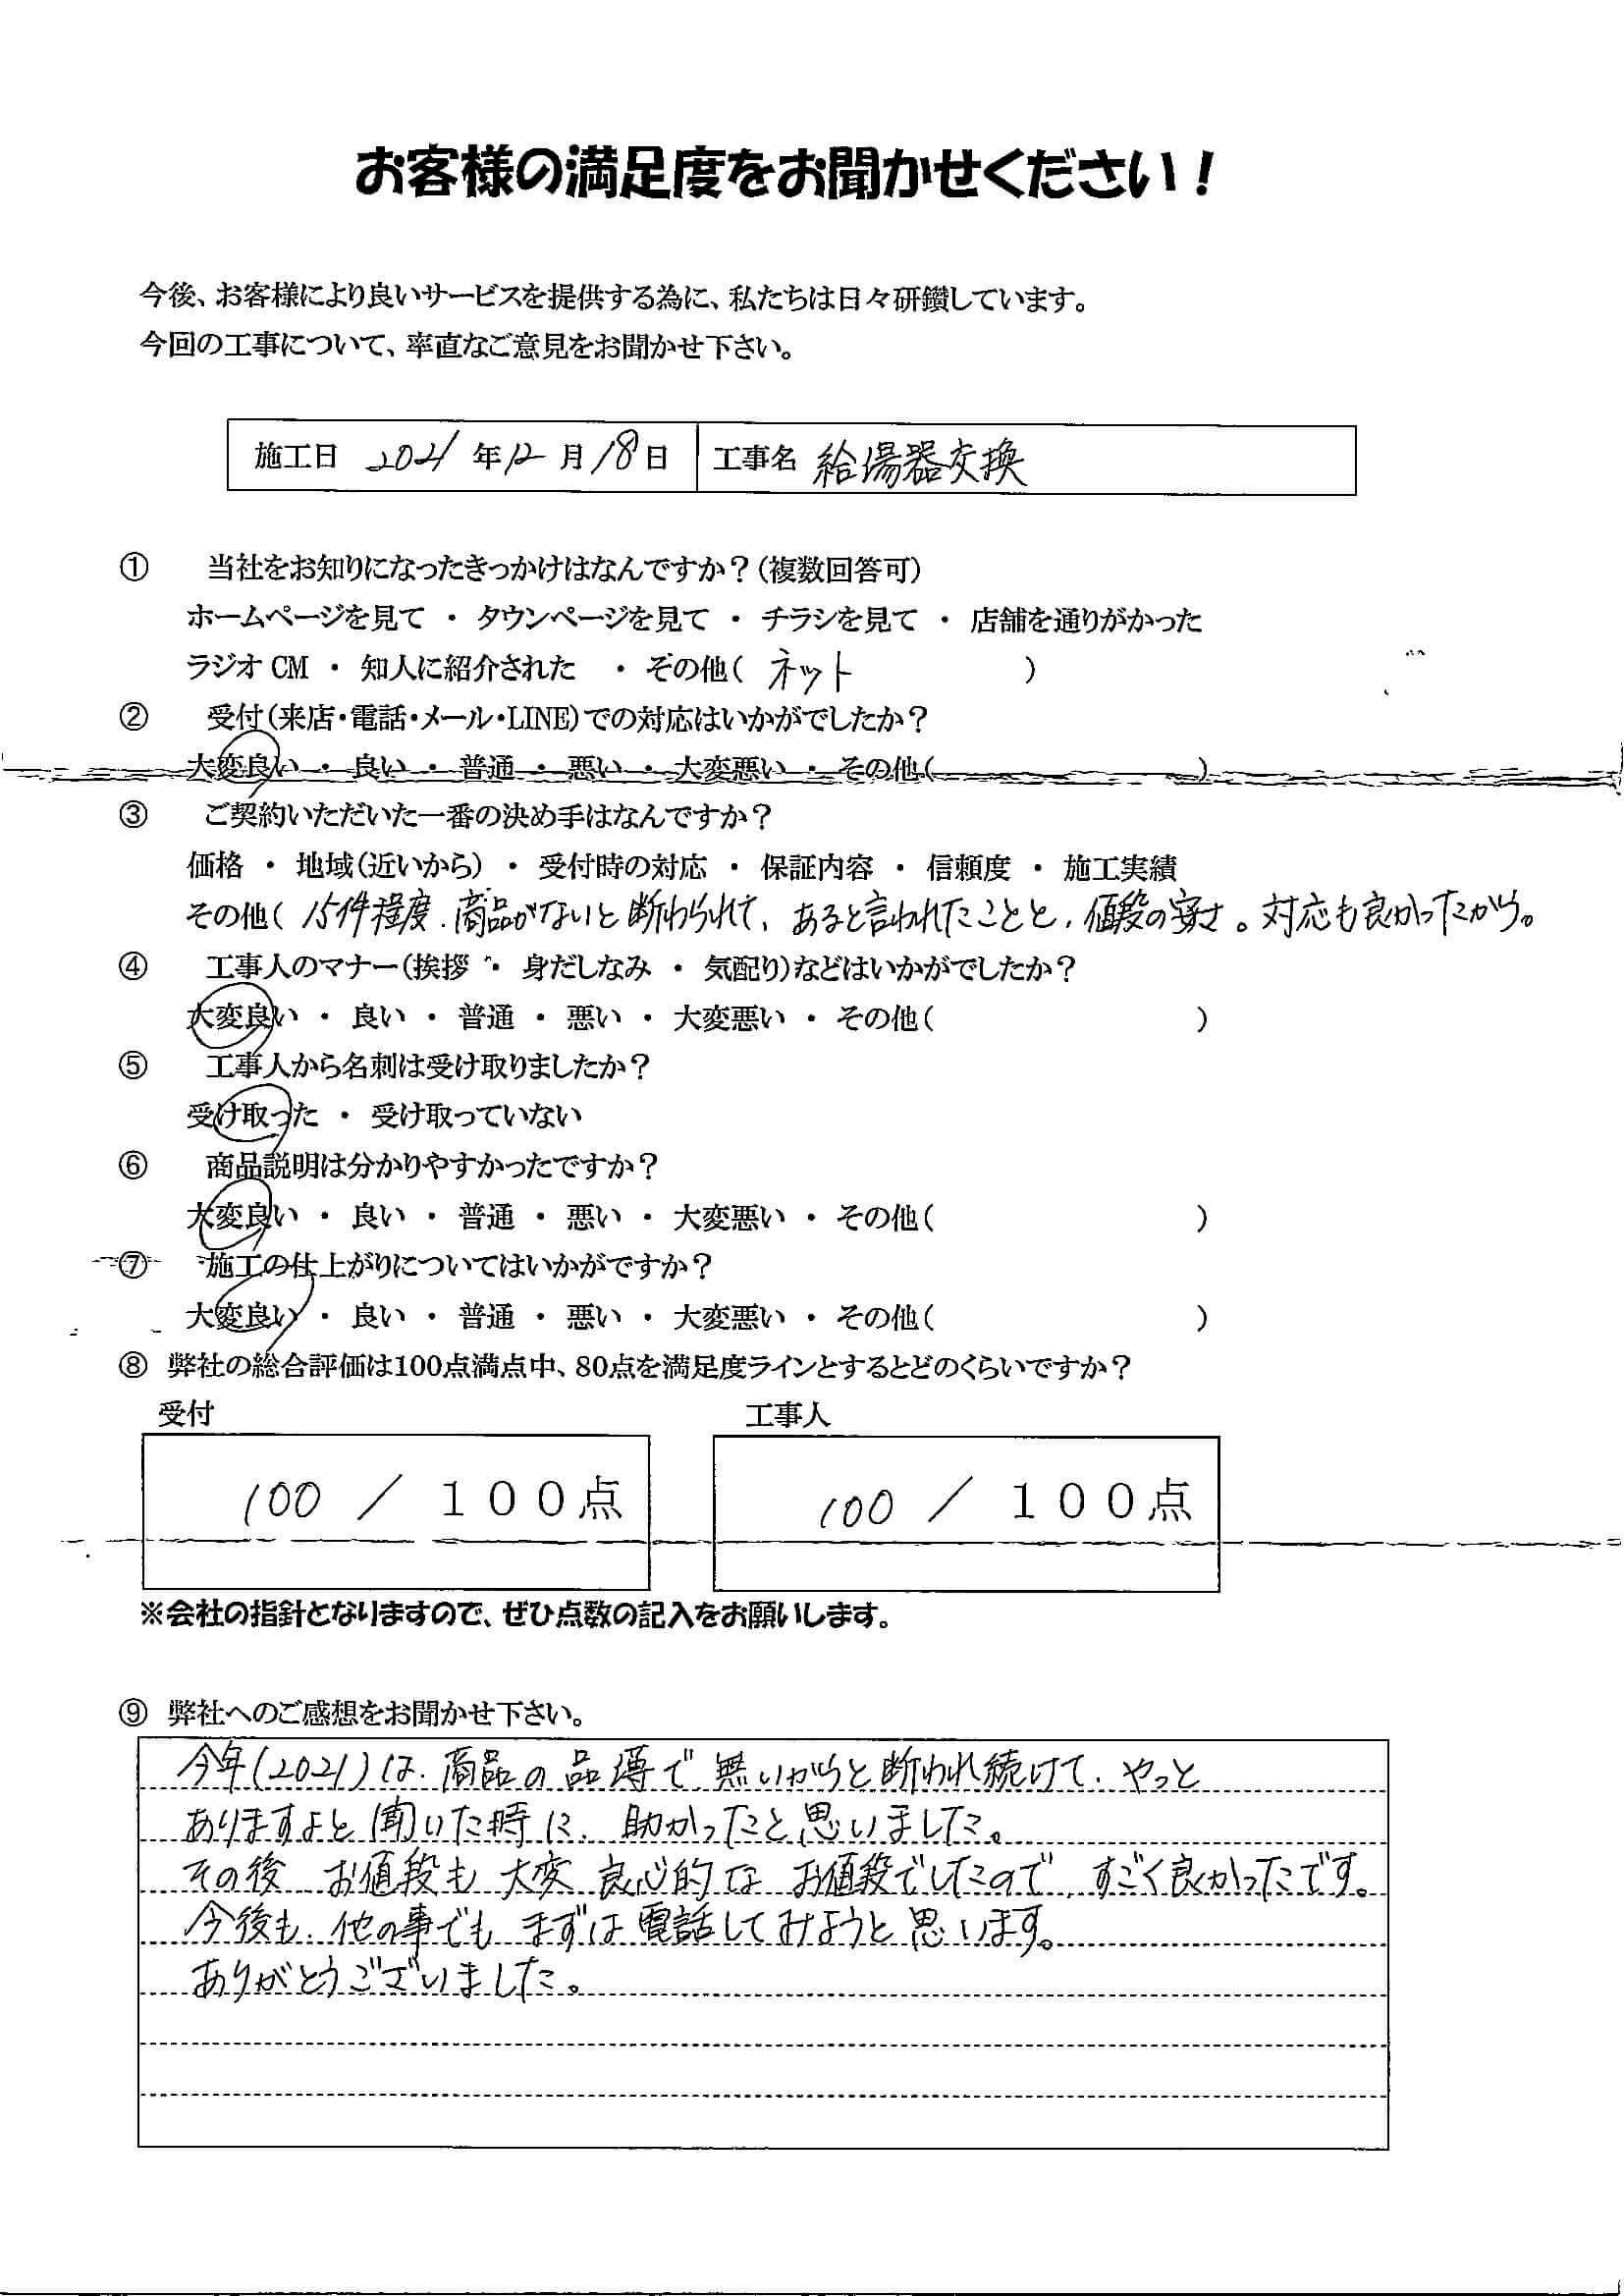 お客様の満足度をお聞かせください！
今後、お客様により良いサービスを提供する為に、私たちは日々研鑽しています。
今回の工事について、率直なご意見をお聞かせ下さい。
施工日 2021 年 12 月 18 日 工事名 給湯器交換
① 当社をお知りになったきっかけはなんですか？(複数回答可)
ホームページを見て ・ タウンページを見て ・ チラシを見て ・ 店舗を通りがかった
ラジオ CM ・ 知人に紹介された ・ その他( ネット )
② 受付(来店・電話・メール・LINE)での対応はいかがでしたか？
大変良い ・ 良い ・ 普通 ・ 悪い ・ 大変悪い ・ その他( )
③ ご契約いただいた一番の決め手はなんですか？
価格 ・ 地域(近いから) ・ 受付時の対応 ・ 保証内容 ・ 信頼度 ・ 施工実績
その他( 15件程度、商品がないと断わられて、あると言われたことと、値段の安さ。対応も良かったから。
④ 工事人のマナー(挨拶 ・ 身だしなみ ・ 気配り)などはいかがでしたか？
大変良い ・ 良い ・ 普通 ・ 悪い ・ 大変悪い ・ その他( )
⑤ 工事人から名刺は受け取りましたか？
受け取った ・ 受け取っていない
⑥ 商品説明は分かりやすかったですか？
大変良い ・ 良い ・ 普通 ・ 悪い ・ 大変悪い ・ その他( )
⑦ 施工の仕上がりについてはいかがですか？
大変良い ・ 良い ・ 普通 ・ 悪い ・ 大変悪い ・ その他( )
⑧ 弊社の総合評価は100点満点中、80点を満足度ラインとするとどのくらいですか？
受付 工事人
100 ／ １００点 100 ／ １００点
※会社の指針となりますので、ぜひ点数の記入をお願いします。
⑨ 弊社へのご感想をお聞かせ下さい。
今年(2021)は、商品の品薄で 無いからと断われ続けて、やっと
ありますよと聞いた時に、助かったと思いました。
その後 お値段も 大変 良心的な お値段でしたので、すごく良かったです。
今後も、他の事でも まずは電話してみようと思います。
ありがとうございました。